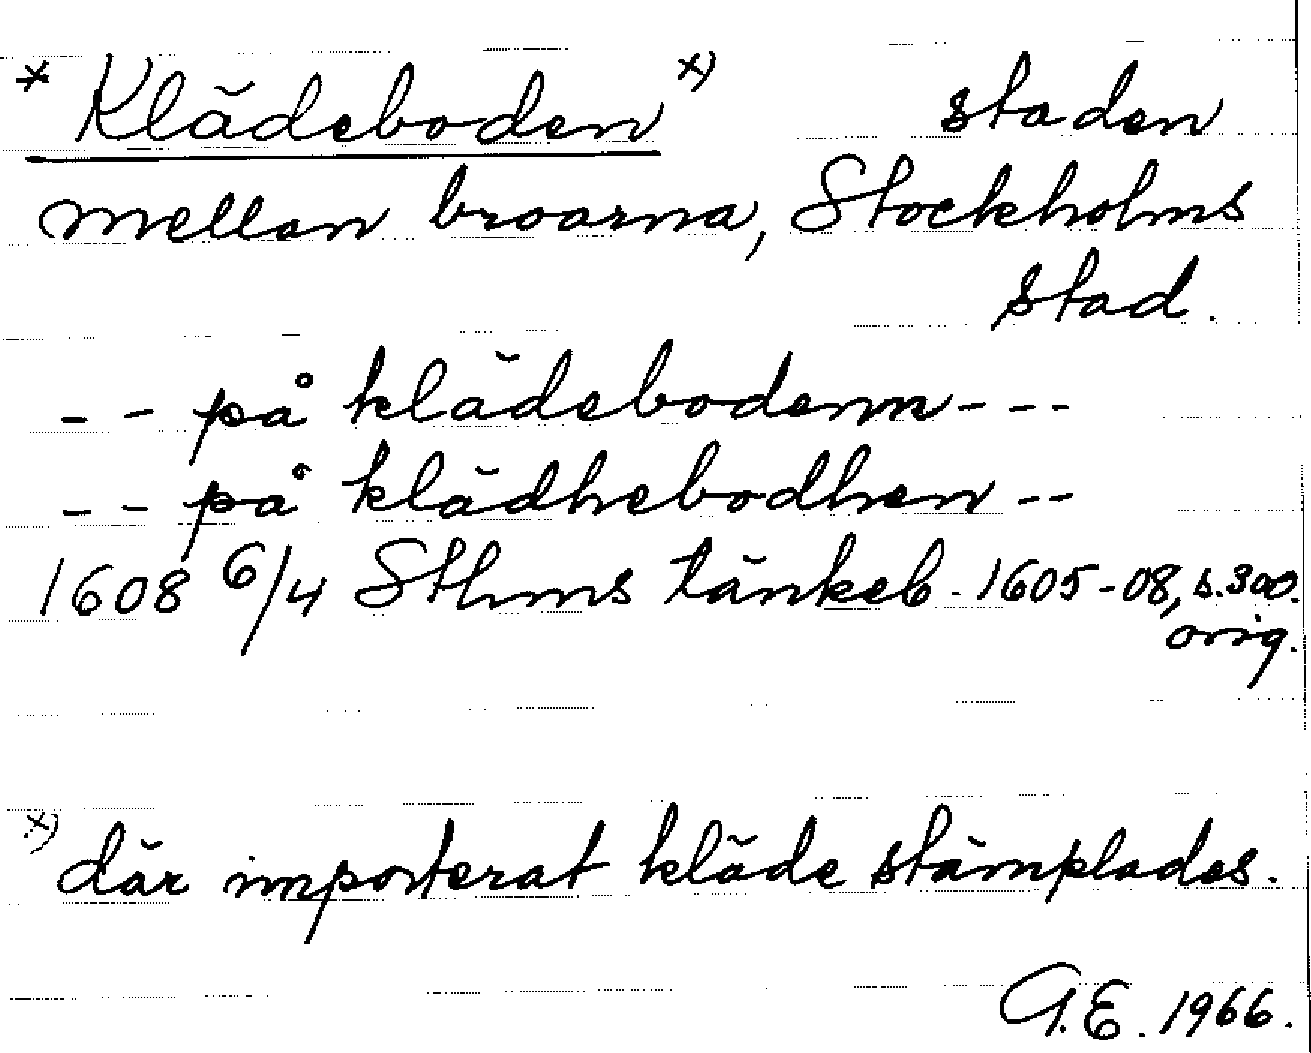 * Klädeboden x) staden
mellan broarna, Stockholms
stad.
- - på klädebodenn - - -
- - på klädhebodhen - -
1608 6/4 Sthms tänkeb. 1605-08, s.300.
orig.
x) där importerat kläde stämplades.
G.E. 1966.